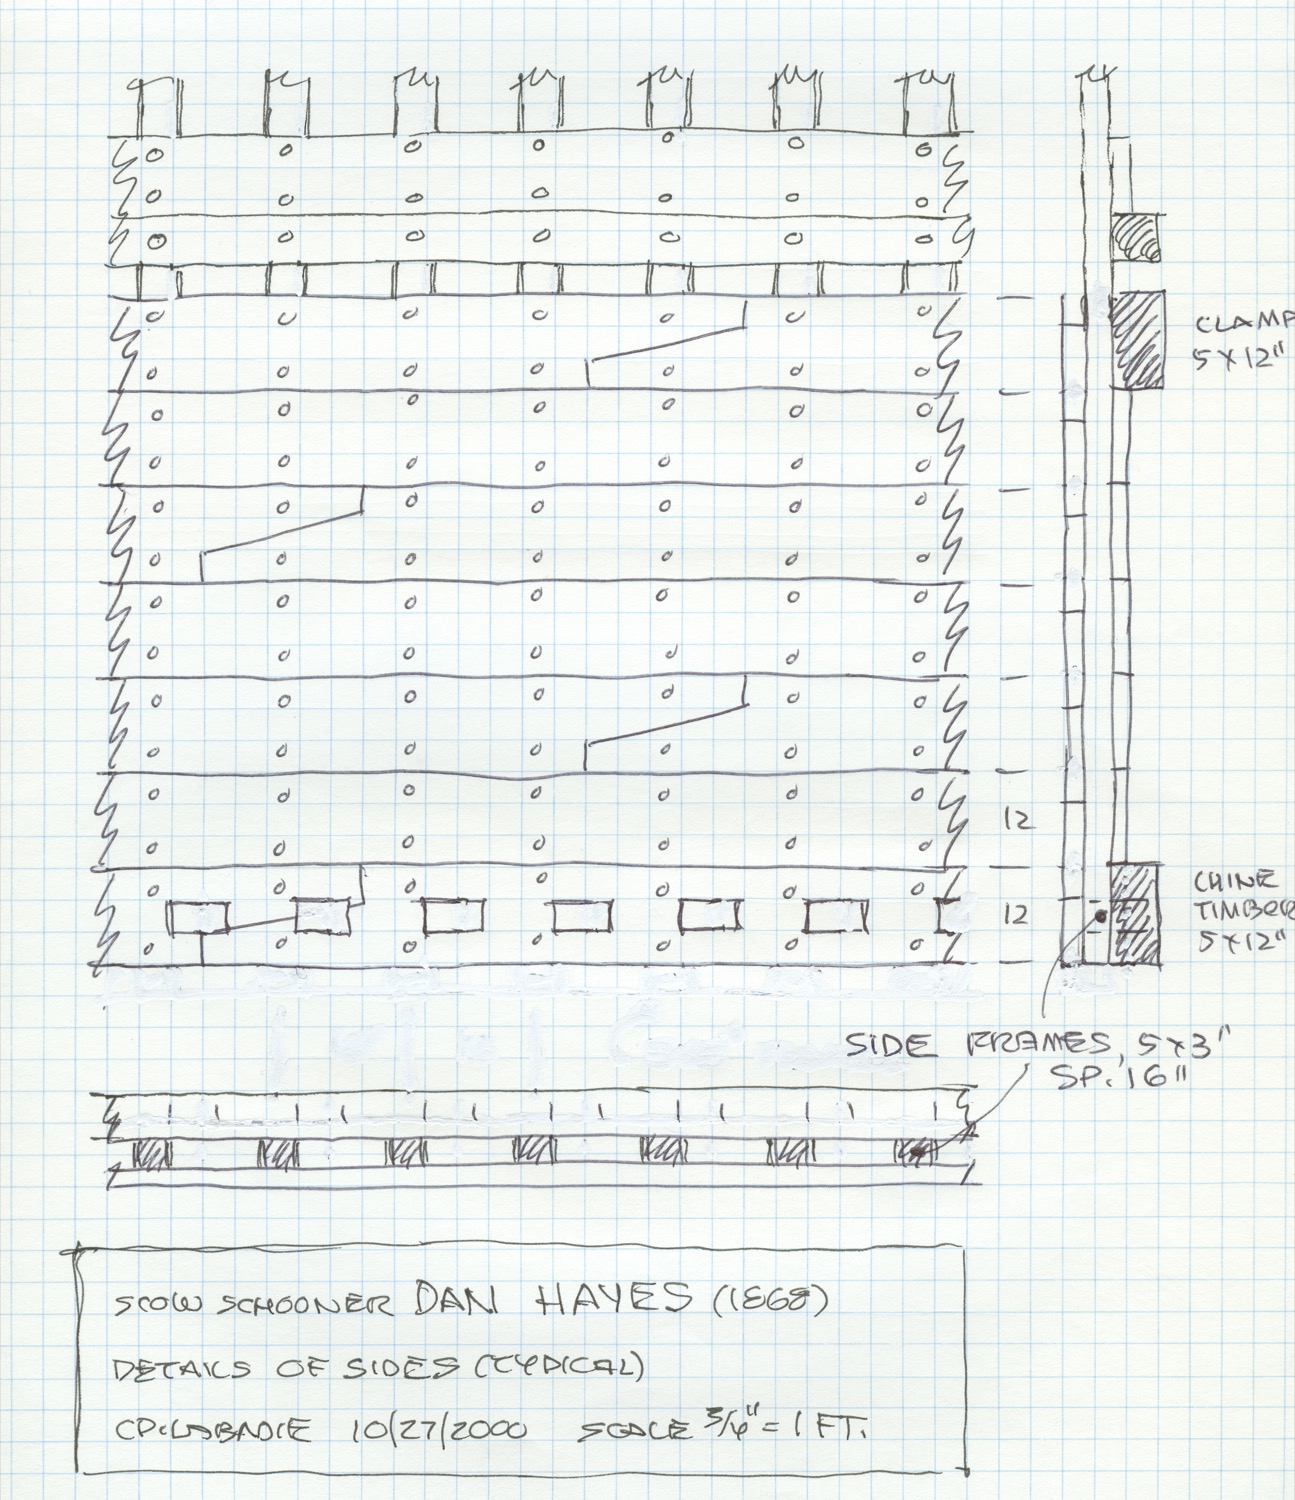 CLAMP
5 X 12"
12
12
CHINE
TIMBER
5 X 12"
SIDE FRAMES, 5 x 3"
SP. 16"
SCOW SCHOONER DAN HAYES (1868)
DETAILS OF SIDES (TYPICAL)
CP. LABADIE 10/27/2000 SCALE 3/4" = 1 FT.